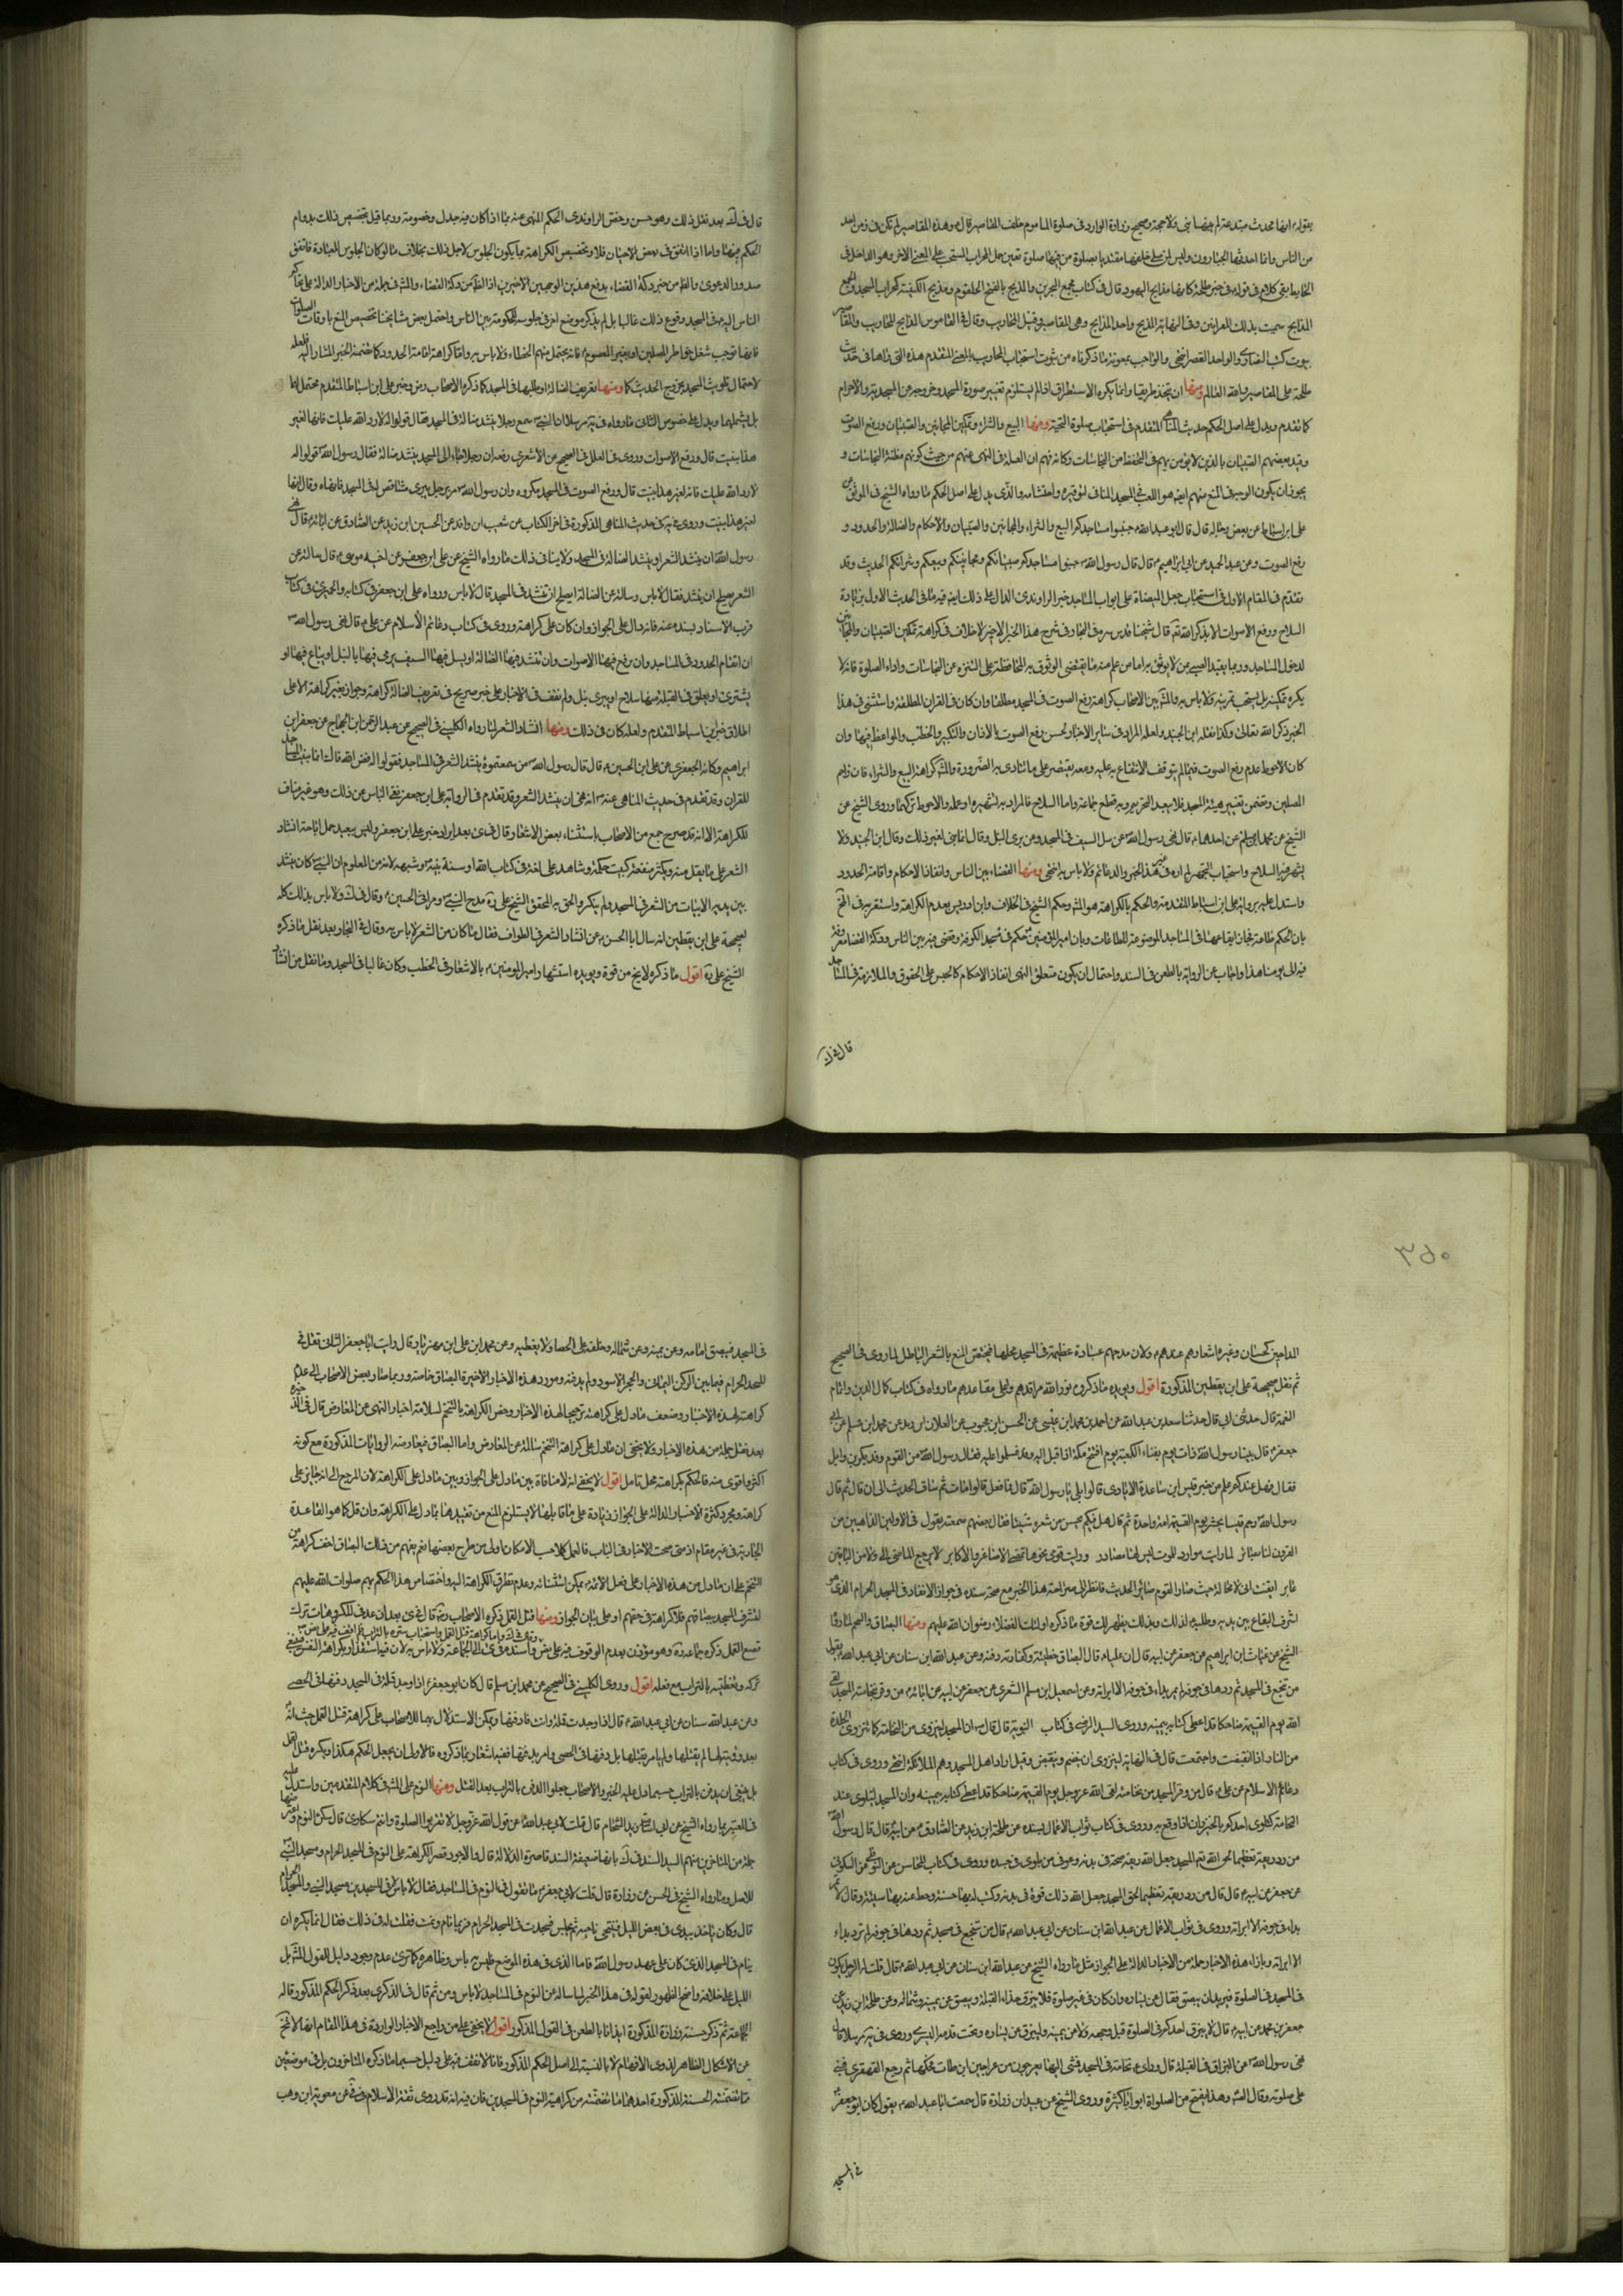 بقوله انها محدث مبتدعة لم يعنها نبي ولا حجة وصحيح زرارة الوارد في صلوة الماموم خلف المقاصير قال وهذه المقاصير لم تكن في زمن احد
من الناس وانما احدثها الجبارون وليس لمن صلى خلفها مقتديا بصلوة من فيها صلوة تعين حمل المحراب المستحب على المعنى الاخر وهو الداخل في
الحايط بقي كلام في قوله في خبر طلحة كانها مذابح اليهود قال في كتاب مجمع البحرين والمذبح بالفتح الحلقوم ومذبح الكنيسة كمحراب المسجد والجمع
المذابح سميت بذلك للقرابين وفي النهاية المذبح واحد المذابح وهي المقاصير وقيل المحاريب وقال في القاموس المذابح المحاريب والمقاصير
بيوت كتب النصارى والواحد
طلحة على المقاصير والله العالم ومنها ان تتخذ طريقا وانما يكره الاستطراق اذا لم يستلزم تغيير صورة المسجد وخروجه عن المسجدية والاحرام
كما تقدم ويدل على اصل الحكم حديث المناهي المتقدم في استحباب صلوة التحية ومنها البيع والشراء وتمكين المجانين والصبيان ورفع الصوت
وقيد بعضهم الصبيان بالذين لا يؤمن بهم في التحفظ من النجاسات وكانه فهم ان العلة في النهي عنهم من حيث كونهم مظنة النجاسات و
يجوز ان يكون الوجه في المنع منهم ايضا هو اللعب في المسجد المنافي لتوقيره واحتشامه والذي يدل على اصل الحكم ما رواه الشيخ في الموثق عن
علي بن اسباط عن بعض رجاله قال قال ابو عبد الله جنبوا مساجدكم البيع والشراء والمجانين والصبيان والاحكام والضالة والحدود و
رفع الصوت وعن عبد الحميد عن ابي ابراهيم قال قال رسول الله جنبوا مساجدكم صبيانكم ومجانينكم وبيعكم وشرائكم الحديث وقد
تقدم في المقام الاول في استحباب جعل الميضاة على ابواب المساجد خبر الراوندي الدال على ذلك ايضا فيه ما في الحديث الاول بزيادة
السلاح ورفع الاصوات الا بذكر الله ثم قال شيخنا قدس سره في البحار في شرح هذا الخبر الاخير لا خلاف في كراهة تمكين الصبيان والمجانين
لدخول المساجد وربما يقيد الصبي بمن لا يوثق به اما من علم منه ما يقتضي الوثوق به المحافظة على التنزه عن النجاسات واداء الصلوة فانه لا
يكره تمكينه بل يستحب تمرينه ولا باس به والمشهور بين الاصحاب كراهة رفع الصوت في المسجد مطلقا وان كان في القران المطلقة واستثنى في هذا
الخبر ذكر الله تعالى وكذا نقله ابن الجنيد ولعله المراد في ساير الاخبار لحسن رفع الصوت بالاذان والتكبير والخطب والمواعظ فيها وان
كان الاحوط عدم رفع الصوت فيما لم يتوقف الانتفاع به عليه ومعه يقتصر على ما تتادى به الضرورة والمشهور كراهة البيع والشراء فان زاحم
المصلين وتضمن تغيير هيئة المسجد فلا يبعد التحريم وبه قطع جماعة واما السلاح فالمراد به تشهيره او عمله والاحوط تركهما وروى الشيخ عن
الشيخ عن محمد بن مسلم عن احدهما قال نهى رسول الله عن سل السيف في المسجد وعن بري النبل وقال انما بني لغير ذلك وقال ابن الجنيد ولا
يشهر فيه السلاح واستحباب التجمير لم اره في غير هذا الخبر والدعائم ولا باس به انتهى ومنها القضاء بين الناس وانفاذ الاحكام واقامة الحدود
واستدل عليه برواية علي بن اسباط المتقدمة والحكم بالكراهة هو المشهور وحكم الشيخ في الخلاف وابن ادريس بعدم الكراهة واستقربه في المخ
بان الحكم طاعة فجاز ايقاعها في المساجد الموضوعة للطاعات وبان امير المؤمنين حكم في مسجد الكوفة وقضى فيه بين الناس ودكة القضا معروفة
فيه الى يومنا هذا واجاب عن الرواية بالطعن في السند واحتمال ان يكون متعلق النهي انفاذ الاحكام كالحبس على الحقوق والملازمة في المساجد
قال في ك
قال في ك بعد نقل ذلك وهو حسن وخص الراوندي الحكم المنهي عنه بما اذا كان فيه جدل وخصومة وربما قيل بتخصيص ذلك بدوام
الحكم فيها واما اذا اتفق في بعض الاحيان فلا وبتخصيص الكراهة بما يكون الجلوس لاجل ذلك بخلاف ما لو كان الجلوس للعبادة فاتفق
صدور الدعوى والظاهر من خبر دكة القضاء يدفع هذين الوجهين الاخيرين
الناس اليه في المسجد وقوع ذلك غالبا بل لم يذكر موضع اخر في جلوسه للحكومة بين الناس واحتمل بعض مشايخنا تخصيص المنع باوقات الصلوات
فانها توجب شغل خواطر المصلين او بغير المعصوم فانه يحتمل منهم الخطاء ولا باس به واما كراهة اقامة الحدود كما تضمنه الخبر المشار اليه فلعله
لاحتمال تلويث المسجد بخروج الحدث كما ومنها تعريف الضالة او طلبها في المسجد كما ذكره الاصحاب رض وخبر علي بن اسباط المتقدم محتمل لهما
بل يشملهما ويدل على خصوص الثاني ما رواه في يه مرسلا ان النبي سمع رجلا ينشد ضالة في المسجد فقال قولوا له لا رد الله عليك فانها لغير
هذا بنيت قال ورفع الاصوات وروى في العلل في الصحيح عن الاشعري رفعه ان رجلا جاء الى المسجد ينشد ضالة فقال رسول الله قولوا له
لا رد الله عليك فانه لغير هذا بنيت قال ورفع الصوت في المسجد يكره وان رسول الله مر برجل يبري مشاقص له في المسجد فنهاه وقال انها
لغير هذا بنيت وروى في يه في حديث المناهي المذكورة في اخر الكتاب عن شعيب ابن واقد عن الحسين ابن زيد عن الصادق عن ابائه قال نهى
رسول الله ان ينشد الشعر او ينشد الضالة في المسجد ولا ينافي ذلك ما رواه الشيخ عن علي ابن جعفر عن اخيه موسى قال سالته عن
الشعر يصلح ان ينشد فقال لا باس وسالته عن الضالة ايصلح ان تنشد في المسجد قال لا باس ورواه علي ابن جعفر في كتابه والحميري في كتاب
قرب الاسناد بسنده عنه فانه دال على الجواز وان كان على كراهة وروى في كتاب دعائم الاسلام عن علي قال نهى رسول الله
ان تقام الحدود في المساجد وان يرفع فيها الاصوات وان تنشد فيها الضالة او يسل فيها السيف او يرمى فيها بالنبل او يباع فيها او
يشترى او يعلق في القبلة منها سلاح او يبرى نبل ولم نقف في الاخبار على خبر صريح في تعريف الضالة كراهة وجواز بغير كراهة الا على
اطلاق خبر ابن اسباط المتقدم ولعله كان في ذلك ومنها انشاد الشعر لما رواه الكليني في الصحيح عن عبد الرحمن ابن الحجاج عن جعفر ابن
ابراهيم وكانه الجعفري عن علي ابن الحسين قال قال رسول الله من سمعتموه ينشد الشعر في المساجد فقولوا له فض الله فاك انما بنيت المساجد
للقران وقد تقدم في حديث المناهي عنه انه نهى ان ينشد الشعر وقد تقدم في الرواية علي ابن جعفر نفي الباس عن ذلك وهو غير مناف
للكراهة الا انه قد صرح جمع من الاصحاب باستثناء بعض الاشعار وقال في ى بعد ايراد خبر علي ابن جعفر وليس ببعيد حمل اباحة انشاد
الشعر على ما يقل منه ويكثر منفعته كبيت حكمة وشاهد على لغة في كتاب الله او سنة نبيه وشبهه لانه من المعلوم ان النبي كان ينشد
بين يديه الابيات من الشعر في المسجد ولم ينكر والحق به المحقق الشيخ علي ره مدح النبي ومراثي الحسين وقال في ك ولا باس بذلك كله
لصحيحة علي ابن يقطين انه سال ابا الحسن عن انشاد الشعر في الطواف فقال ما كان من الشعر لا باس به وقال في البحار بعد نقل ما ذكره
الشيخ علي ره اقول ما ذكره لا يخ من قوة ويؤيده استشهاد امير المؤمنين بالاشعار في الخطب وكان غالبا في المسجد وما نقل من انشاد
٣٥٠
المداحين كحسان وغيره اشعارهم عندهم ولان مدحهم عبادة عظيمة في المسجد محلها فيختص المنع بالشعر الباطل لما روى في الصحيح
ثم نقل صحيحة علي ابن يقطين المذكورة اقول ويؤيده ما ذكروه نور الله مراقدهم واعلى مقاعدهم ما رواه في كتاب كمال الدين واتمام
النعمة قال حدثني ابي قال حدثنا سعد بن عبد الله عن احمد بن محمد ابن عيسى عن الحسن ابن محبوب عن العلا ابن رزين عن محمد ابن مسلم عن ابي
جعفر قال بينا رسول الله ذات يوم بفناء الكعبة يوم افتتح مكة اذ اقبل اليه وفد فسلموا عليه فقال رسول الله من القوم قالوا وفد بكر بن وايل
فقال فهل عندكم علم من خبر قس ابن ساعدة الايادي قالوا بلى يا رسول الله قال فما فعل قالوا مات ثم ساق الحديث الى ان قال ثم قال
رسول الله رحم قسا يحشر يوم القيمة امة واحدة ثم قال هل فيكم احد يحسن من شعره شيئا فقال بعضهم سمعته يقول في الاولين الذاهبين من
القرون لنا بصائر لما رايت مواردا للموت ليس لها مصادر ورايت قومي نحوها تمضي الاصاغر والاكابر لا يرجع الماضي الي ولا من الباقين
غابر ايقنت اني لا محالة حيث صار القوم صائر الحديث فانظر الى صراحة هذا الخبر مع صحة سنده في جواز الانشاد في المسجد الحرام الذي هو
اشرف البقاع بين يديه وطلبه لذلك وبذلك يظهر لك قوة ما ذكره اولئك الفضلاء رضوان الله عليهم ومنها البصاق والنخم لما روى
الشيخ عن غياث ابن ابراهيم عن جعفر عن ابيه قال ان عليا قال البصاق خطيئة وكفارته دفنه وعن عبد الله ابن سنان عن ابي عبد الله يقول
من تنخع في المسجد ثم ردها في جوفه لم يمر بداء في جوفه الا ابراته وعن اسمعيل ابن مسلم الشعيري عن جعفر عن ابيه عن ابائه من وقر بنخامته المسجد لقى
الله يوم القيمة ضاحكا قد اعطى كتابه بيمينه وروى السيد الرضي في كتاب النبوية قال قال ان المسجد لينزوي من النخامة كما تنزوي الجلدة
من النار اذا انقبضت واجتمعت قال في النهاية لينزوي اي ينضم وينقبض وقيل اراد اهل المسجد وهم الملائكة انتهى وروى في كتاب
دعائم الاسلام عن علي قال من وقر المسجد من نخامته لقى الله عز وجل يوم القيمة ضاحكا قد اعطى كتابه بيمينه وان المسجد ليلتوي عند
النخامة كما يلتوي احدكم بالخيزران اذا وقع به وروى في كتاب ثواب الاعمال بسنده عن طلحة ابن زيد عن الصادق عن ابيه قال قال رسول الله
من رد ريقه تعظيما لحق الله تعم المسجد جعل الله ريقه صحة في بدنه وعوفي من بلوى في جسده وروى في كتاب المحاسن عن النوفلي عن السكوني
عن جعفر عن ابيه قال قال من رد ريقه تعظيما لحق المسجد جعل الله ذلك قوة في بدنه وكتب له بها حسنة وحط عنه بها سيئة وقال لا تمر
بداء في جوفه الا ابراته وروى في ثواب الاعمال عن عبد الله ابن سنان عن ابي عبد الله قال من تنخع في مسجد ثم ردها في جوفه لم تمر بداء
الا ابراته وبازاء هذه الاخبار جملة من الاخبار الدالة على الجواز مثل ما رواه الشيخ عن عبد الله ابن سنان عن ابي عبد الله قال قلت له الرجل يكون
في المسجد في الصلوة فيريد ان يبصق فقال عن يساره وان كان في غير صلوة فلا يبزق حذاء القبلة ويبصق عن يمينه وشماله وعن طلحة ابن زيد عن
جعفر بن محمد عن ابيه قال لا يبزق احدكم في الصلوة قبل وجهه ولا عن يمينه وليبزق عن يساره وتحت قدمه اليسرى وروى في يه مرسلا قال
نهى رسول الله عن البزاق في القبلة قال وراى نخامة في المسجد فمشى اليها بعرجون من عراجين ابن طاب فحكها ثم رجع القهقرى فبنى
على صلوته وقال الصادق وهذا يفتح من الصلوة ابوابا كثيرة وروى الشيخ عن عبيد ابن زرارة قال سمعت ابا عبد الله يقول كان ابو جعفر
في المسجد
في المسجد فيبصق امامه وعن يمينه وعن شماله وخلفه على الحصا ولا يغطيه وعن محمد ابن علي ابن مهزيار قال رايت ابا جعفر الثاني تفل في
المسجد الحرام فيما بين الركن اليماني والحجر الاسود ولم يدفنه ومورد هذه الاخبار الاخيرة البصاق خاصة وربما صار بعض الاصحاب الى عدم
كراهته لهذه الاخبار وضعف ما دل على كراهته ترجيحا لهذه الاخبار وخص الكراهة بالتنخم لسلامة اخبار النهي عن المعارض قال في الذخيرة
بعد نقل جملة من هذه الاخبار ولا يخفى ان ما دل على كراهة التنخم سالمة عن المعارض واما البصاق فيعارضه الروايات المذكورة مع كونه
اكثر واقوى منه فالحكم بكراهته محل تامل اقول لا يخفى انه لا منافاة بين ما دل على الجواز وبين ما دل على الكراهة لان المرجع الى انه جايز على
كراهة ومجرد كثرة الاخبار الدالة على الجواز وزيادة على ما قابلها لا يستلزم المنع من تقييدها بما دل على الكراهة وان قل كما هو القاعدة
الجارية في غيره مقام اذ متى صحت الاخبار في الباب فالعمل بها مهما امكن اولى من طرح بعضها نعم يفهم من ذلك البصاق اخف كراهة من
التنخم على ان ما دل من هذه الاخبار على فعل الائمة يمكن استثنائه وعدم تطرق الكراهة اليه واختصاص هذا الحكم بهم صلوات الله عليهم
لتشرف المسجد ببصاقهم فلا كراهة في حقهم او على بيان الجواز ومنها قتل القمل ذكره الاصحاب رضه قال في ى بعد ان عد في المكروهات ترك
قصع القمل ذكره جماعة ره وهو مؤذن بعدم الوقوف فيه على نص
تركه وتغطيته بالتراب مع فعله اقول وروى الكليني في الصحيح عن محمد ابن مسلم قال كان ابو جعفر اذا وجد قملة في المسجد دفنها في الحصى
وعن عبد الله سنان عن ابي عبد الله قال اذا وجدت قملة وانت فادفنها ويمكن الاستدلال بهما للاصحاب على كراهة قتل القمل حيث انه
بعد رؤيته لها لم يقتلها ولم يامر بقتلها بل دفنها في الحصى وامر بدفنها ففيه اشعار بما ذكروه فالاولى ان يجعل الحكم هكذا ويكره قتل القمل
بل ينبغي ان يدفن بالتراب حسبما دل عليه الخبر والاصحاب جعلوا الدفن بالتراب بعد القتل ومنها النوم على المشهور في كلام المتقدمين واستدل عليه
في المعتبر بما رواه الشيخ عن ابي اسامة زيد الشحام قال قلت لابي عبد الله عن قول الله عز وجل لا تقربوا الصلوة وانتم سكارى قال سكر النوم واعترضها
جملة من المتاخرين منهم السيد السند في ك بانها ضعيفة السند قاصرة الدلالة قال والاجود قصر الكراهة على النوم في المسجد الحرام ومسجد النبي
للاصل وما رواه الشيخ في الحسن عن زرارة قال قلت لابي جعفر ما تقول في النوم في المساجد فقال لا باس الا في المسجدين مسجد النبي والمسجد الحرام
قال وكان ياخذ بيدي في بعض الليل فيتنحى ناحية ثم يجلس فيتحدث في المسجد الحرام فربما نام ونمت فقلت له في ذلك فقال انما يكره ان
ينام في المسجد الذي كان على عهد رسول الله فاما الذي في هذا الموضع فليس به باس وظاهره كما ترى عدم وجود دليل القول المشهور بل
الدليل على خلافه واضح الظهور لقوله في هذا الخبر لما ساله عن النوم في المساجد لا باس ومن ثم قال في الذكرى بعد ذكر الحكم المذكور قاله
الجماعة ثم ذكر حسنة زرارة المذكورة ايذانا بالطعن في القول المذكور اقول لا يخفى على من راجع الاخبار الواردة في هذا المقام انها لا تخ
عن الاشكال الظاهر لذوي الافهام لا بالنسبة الى اصل الحكم المذكور فانا لا نقف فيه على دليل حسبما ذكره المتاخرون بل في موضعين
مما تضمنته الحسنة المذكورة احدهما ما تضمنته من كراهية النوم في المسجدين فان فيه انه قد روى ثقة الاسلام في في عن معوية ابن وهب